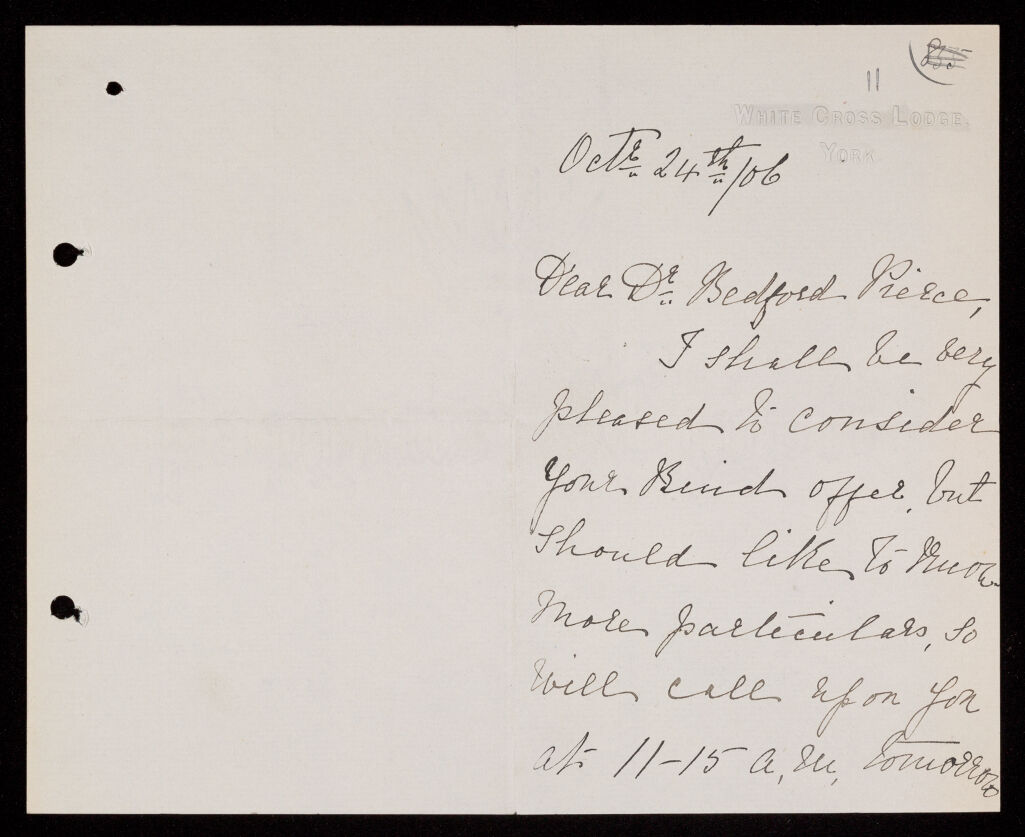 11
WHITE CROSS LODGE.
YORK.
Octr 24th/06
Dear Dr. Bedford Pierce,
I shall be very
pleased to consider
your kind offer, but
should like to know
more particulars, so
will call upon you
at 11-15 a.m. tomorrow